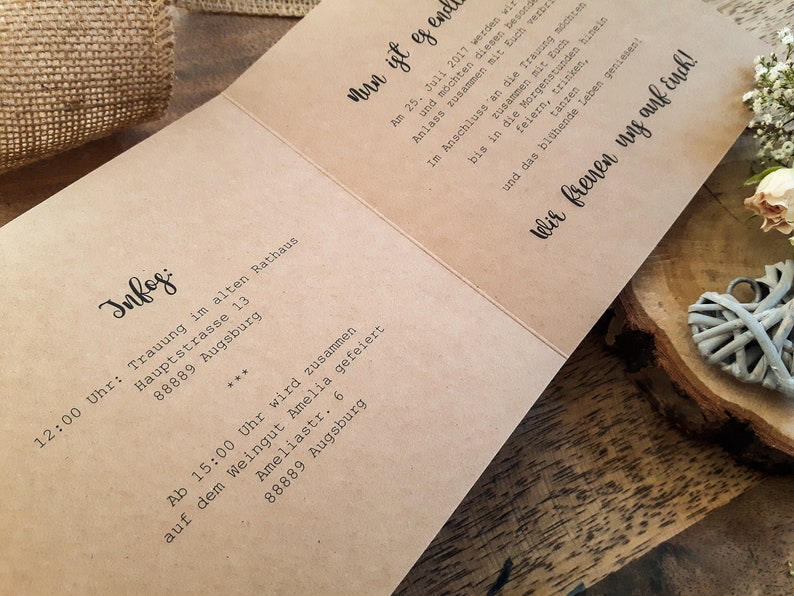 Nun ist es
Am 25. Juli 2017 werden wir
und möchten diesen
Anlass zusammen mit Euch
Im Anschluss an die Trauung möchten
zusammen mit Euch
bis in die Morgenstunden hinein
feiern, trinken,
tanzen
und das blühende Leben genießen!
Wir freuen uns auf Euch!
Infos:
12:00 Uhr: Trauung im alten Rathaus
Hauptstrasse 13
88889 Augsburg
***
Ab 15:00 Uhr wird zusammen
auf dem Weingut Amelia gefeiert
Ameliastr. 6
88889 Augsburg